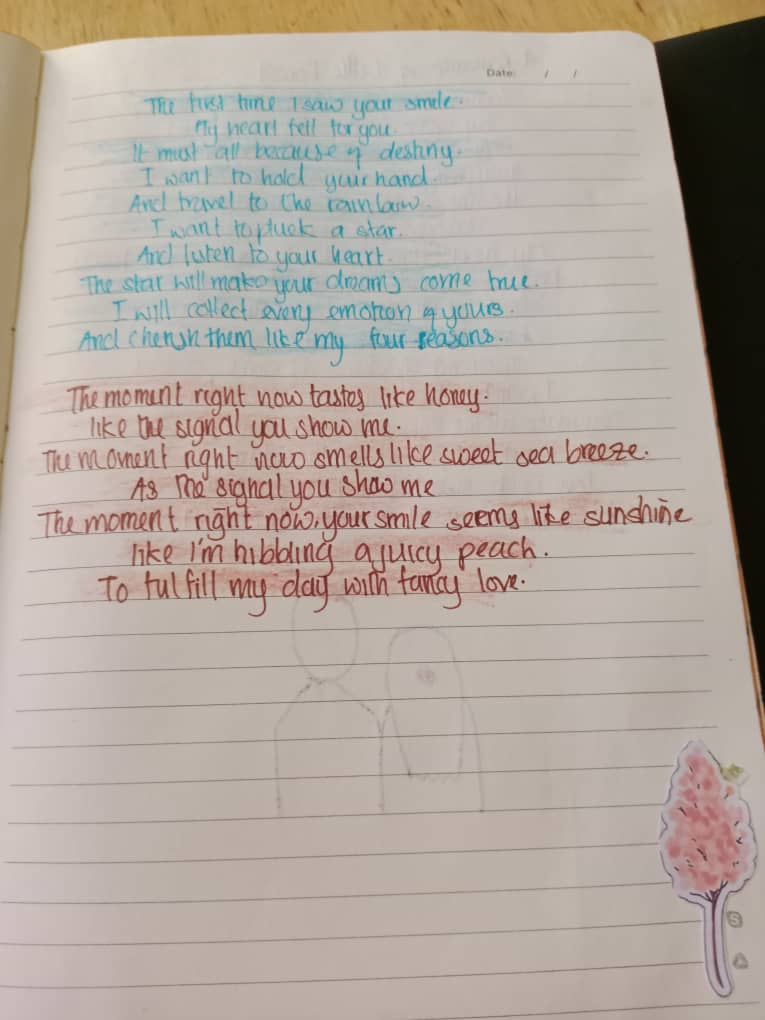 Date: / /
The first time I saw your smile.
My heart fell for you.
It must all because of destiny.
I want to hold your hand.
And travel to the rainbow.
I want to pluck a star.
And listen to your heart.
The star will make your dreams come true.
I will collect every emotion of yours.
And cherish them like my four seasons.
The moment right now tastes like honey.
like the signal you show me.
The moment right now smells like sweet sea breeze.
As the signal you show me
The moment right now, your smile seems like sunshine
like I'm nibbling a juicy peach.
To fulfill my day with fancy love.
S